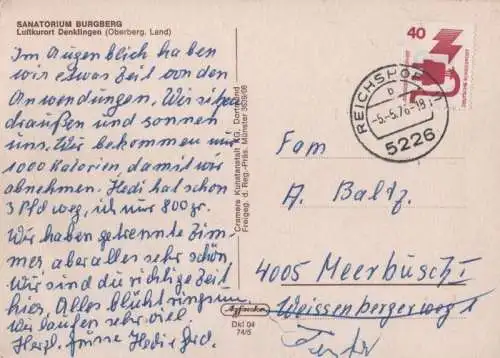 SANATORIUM BURGBERG
Luftkurort Denklingen (Oberberg. Land)
Im Augenblick haben
wir etwas Zeit von den
Anwendungen. Wir sitzen
draußen und sonnen
uns. Wir bekommen nur
1000 Kalorien, damit wir
abnehmen. Hedi hat schon
3 Pfd weg, ich nur 800 gr.
Wir haben getrennte Zim-
mer, aber alles sehr schön.
Wir sind die richtige Zeit
hier. Alles blüht ringsum.
Wir laufen sehr viel.
Herzl. Grüsse Hedi +
Cramers Kunstanstalt KG, Dortmund
Freigeg. d. Reg.-Präs. Münster 3609/06
40
DEUTSCHE BUNDESPOST
REICHSHOF 1
b
-5.-5.76-18
5226
Fam
A. Baltz.
4005 Meerbusch I
Weissenbergerweg 1
Dkl 04
74/5